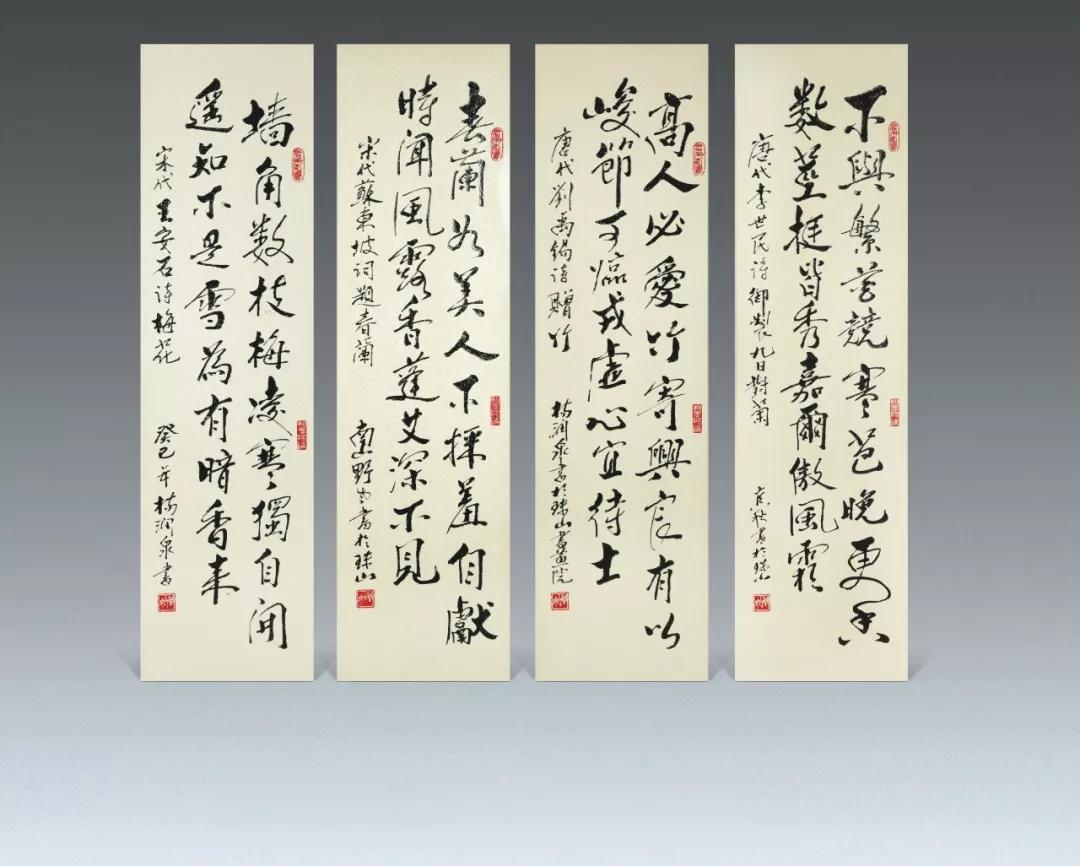 墙角数枝梅凌寒獨自開
遥知不是雪為有暗香来
宋代王安石诗梅花 癸巳年杨润泉書
春蘭如美人不採羞自獻
時聞風露香蓬艾深不見
宋代蘇東坡词题春蘭 野 書於珠山
高人必愛竹寄興良有以
峻節可臨戎虚心宜待士
唐代劉禹锡诗赠竹 杨润泉書於珠山畫院
不與繁花競寒芭晚更香
数莖挺皆秀嘉爾傲風霜
唐代李世民诗御製九日對菊 秋書於珠山